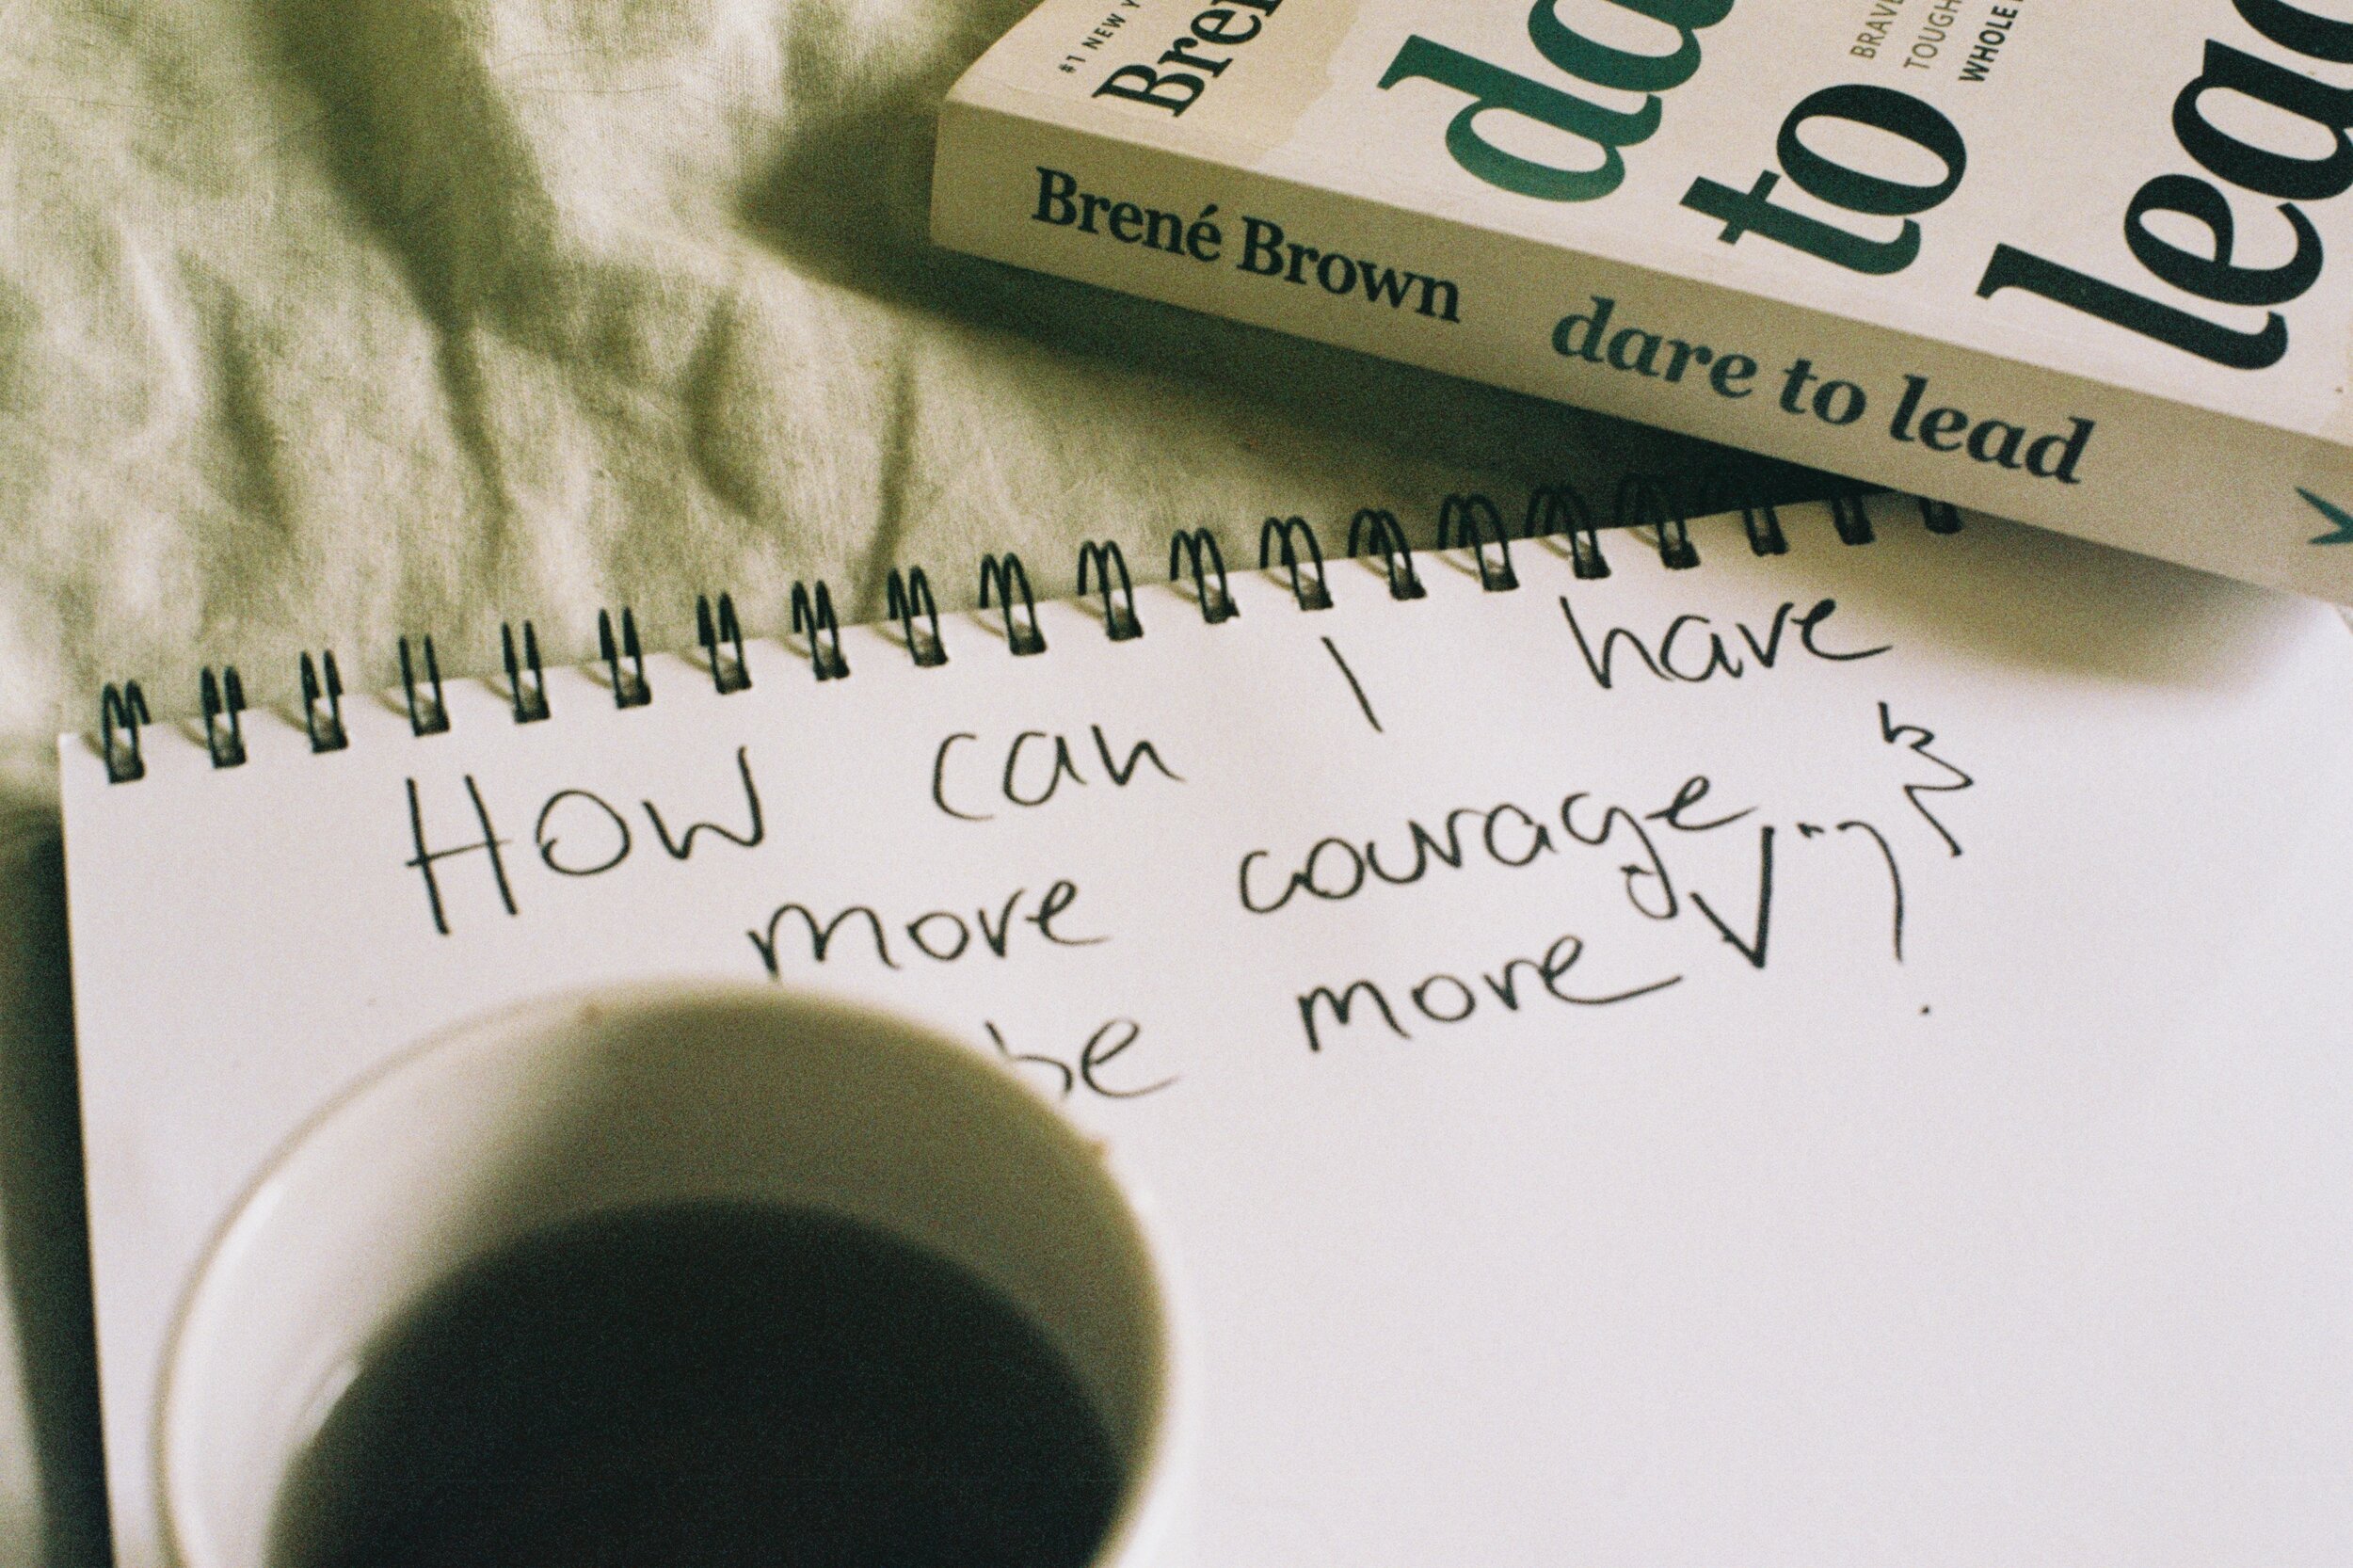 #1 NEW
dare
to
lead
BRAVE
TOUGH
WHOLE
Brené Brown dare to lead
How can I have
more courage
be more